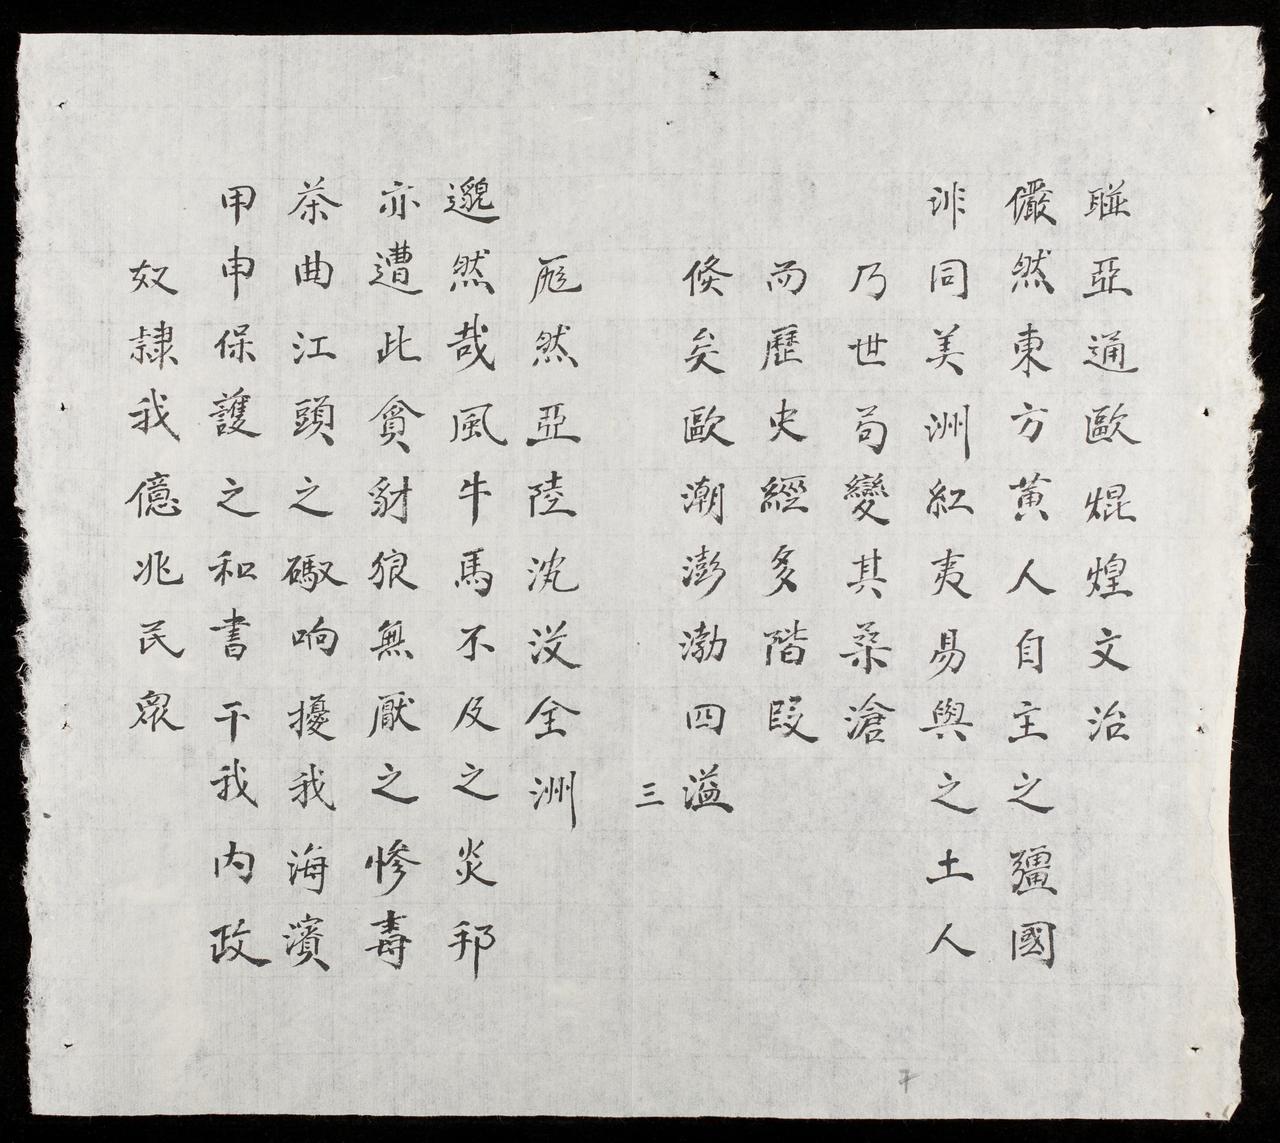 聯亞通歐焜煌文治
儼然東方黃人自主之疆國
詳同美洲紅夷易與之土人
乃世茍變其桑滄
而歷史經多階段
倏矣歐潮澎渤四溢
三
厖然亞陸沈沒全洲
邈然哉風牛馬不及之炎邦
亦遭此貪豺狼無厭之慘毒
茶曲江頭之礮响擾我海濱
甲申保護之和書干我內政
奴隷我億兆民眾